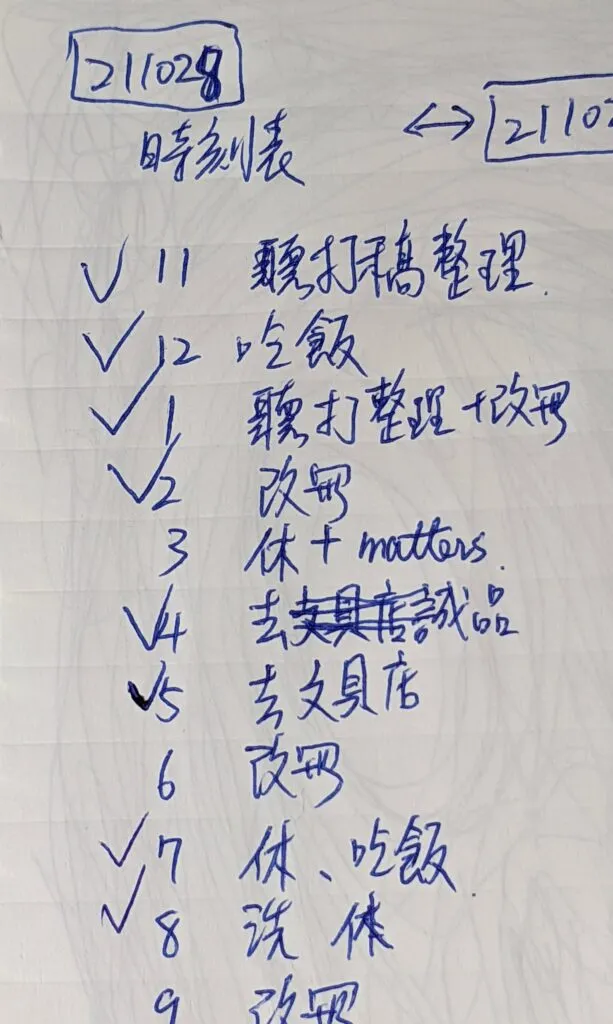 211028
時刻表 ↔ 2110
✓ 11 聽打稿整理.
✓ 12 吃飯
✓ 1 聽打整理+改冊
✓ 2 改冊
3 休+matters.
✓ 4 去文具店誠品
✓ 5 去文具店
6 改冊
✓ 7 休、吃飯
✓ 8 洗 休
9 改冊